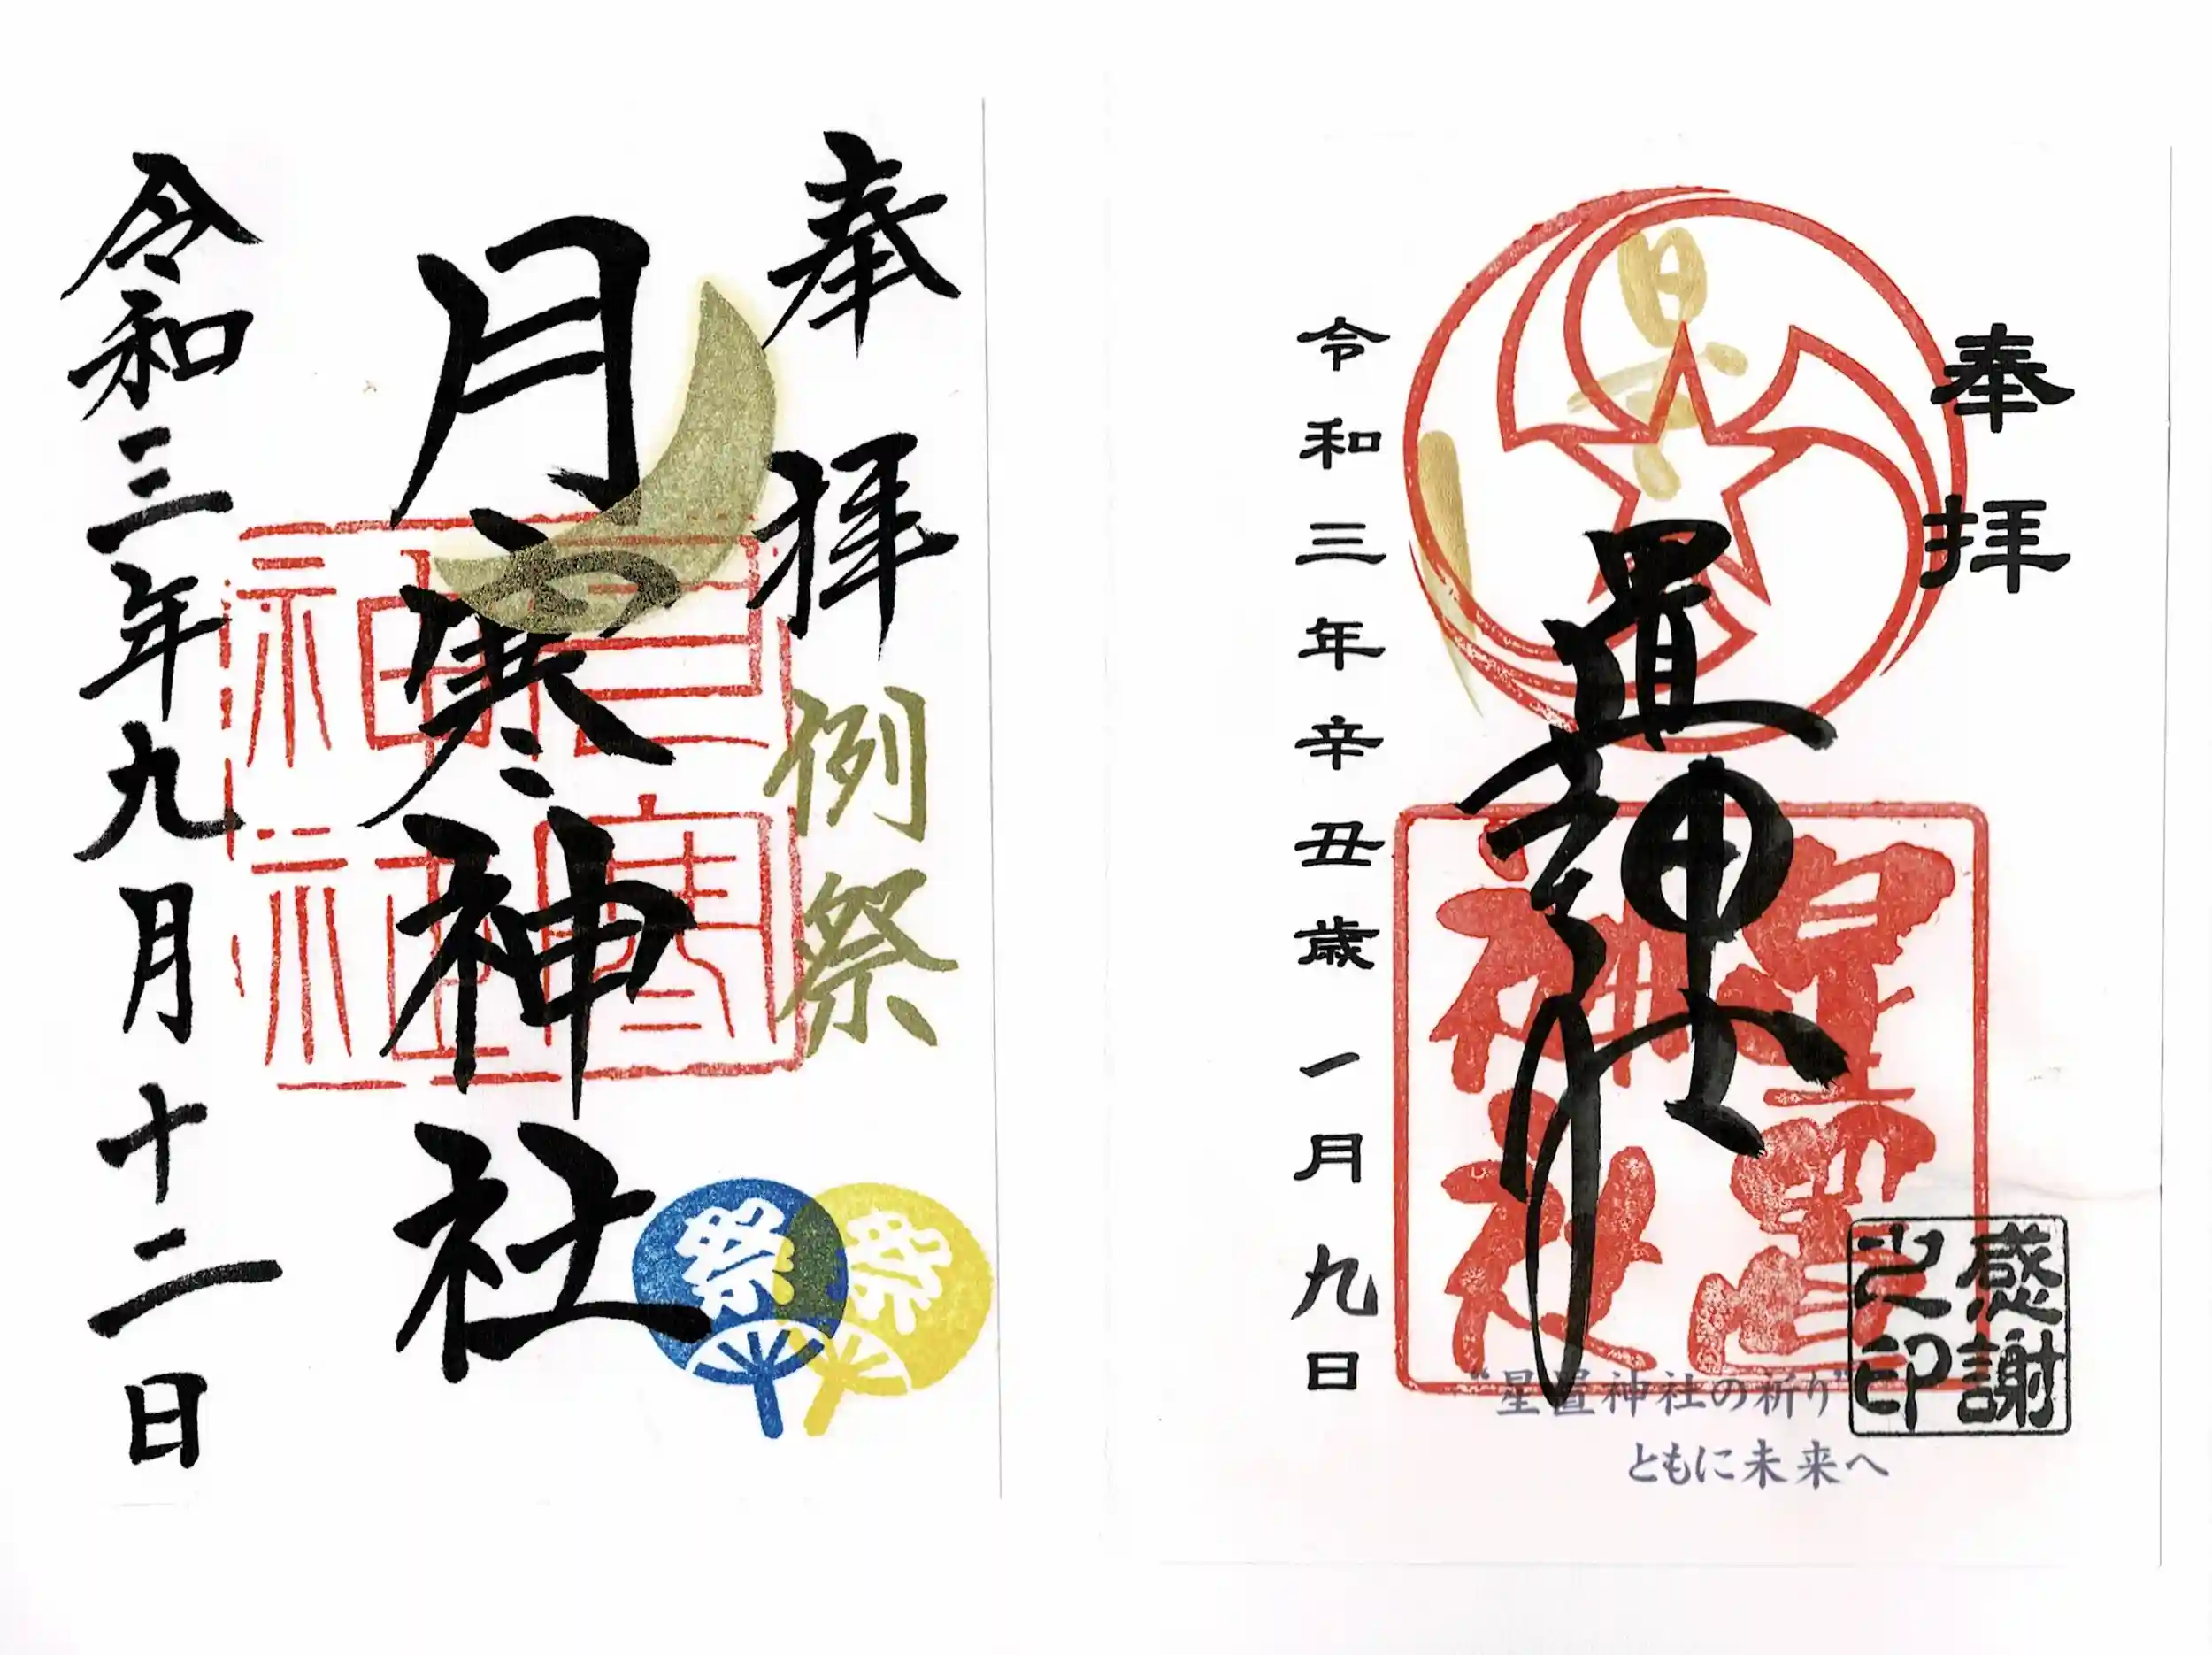 奉拝
星置神社
星置神社
令和三年辛丑歳一月九日
感謝
之印
“星置神社の祈り”
ともに未来へ
奉拝
例祭
月寒神社
月寒
神社
令和三年九月十二日
祭
祭